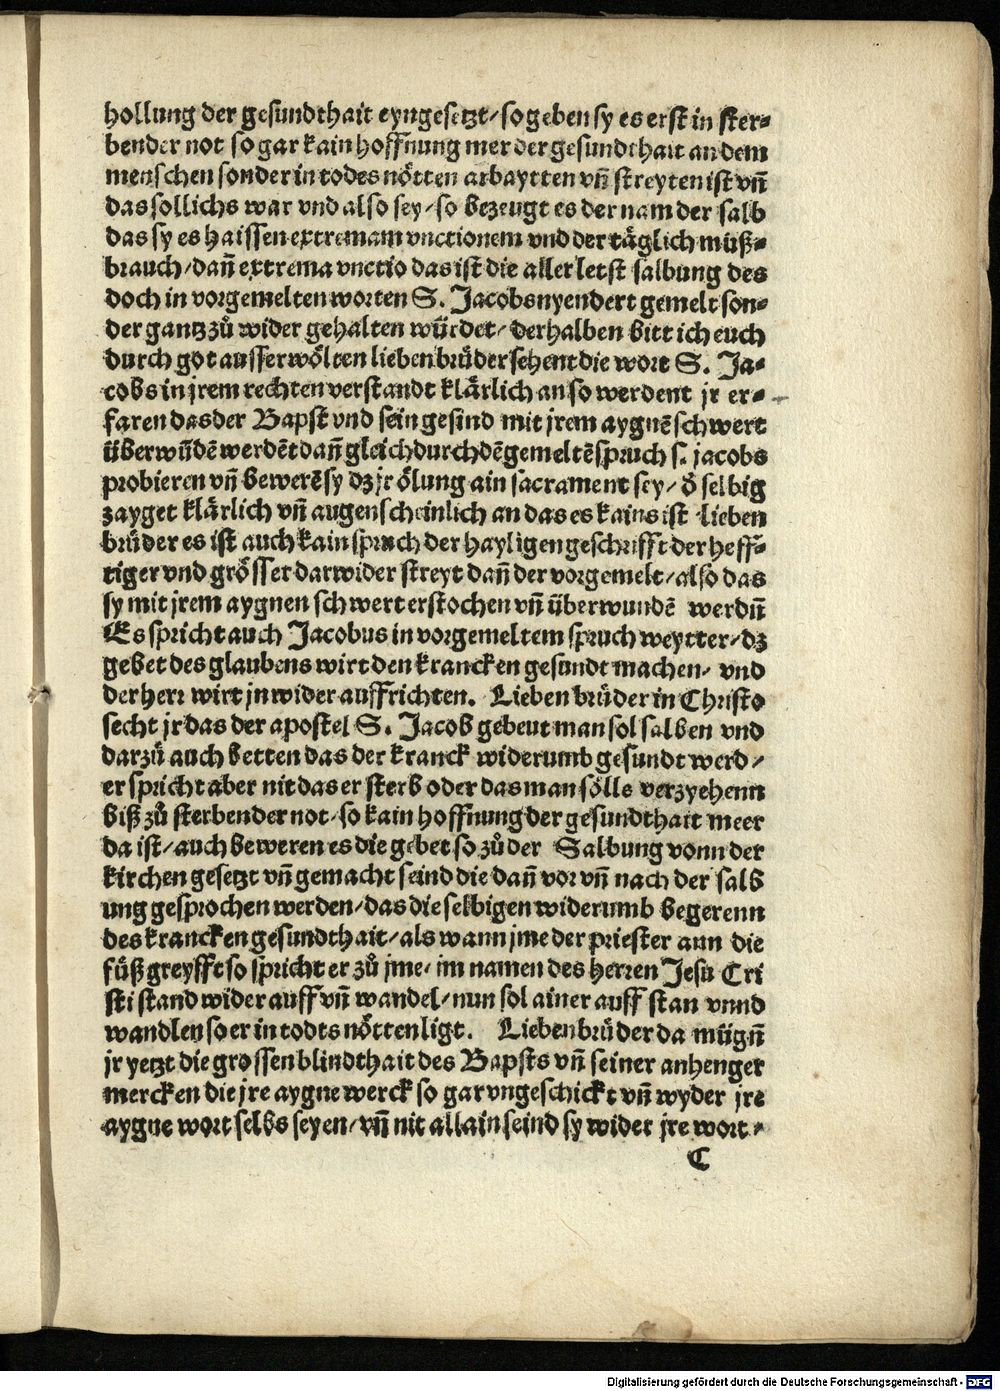 hollung der gesundthait eyngesetzt/ so geben sy es erst in ster⸗
bender not so gar kain hoffnung mer der gesundthait an dem
menschen sonder in todes nötten arbaytten vñ streyten ist vñ
das sollichs war vnd also sey/ so bezeugt es der nam der salb
das sy es haissen extremam vnctionem vnd der täglich müß⸗
brauch/ dañ extrema vnctio das ist die aller letst salbung des
doch in vorgemelten worten S. Jacobs nyendert gemelt son⸗
der gantz zů wider gehalten würdet/ derhalben bitt ich euch
durch got ausserwölten lieben brüder sehent die wort S. Ja⸗
cobs in jrem rechten verstandt klärlich an so werdent jr er⸗
faren das der Bapst vnd sein gesind mit jrem aygnē schwert
überwūdē werdēt dañ gleich durch dē gemeltē spruch s. jacobs
probieren vñ bewerē sy dz jr ölung ain sacrament sey/ ð selbig
zayget klärlich vñ augenscheinlich an das es kains ist lieben
brüder es ist auch kain spruch der hayligen geschrifft der heff⸗
tiger vnd grösser darwider streyt dañ der vorgemelt/ also das
sy mit jrem aygnen schwert erstochen vñ überwundē werdñ
Es spricht auch Jacobus in vorgemeltem spruch weytter/ dz
gebet des glaubens wirt den krancken gesundt machen/ vnd
der herr wirt jn wider auffrichten. Lieben brüder in Christo
secht jr das der apostel S. Jacob gebeut man sol salben vnd
darzů auch betten das der kranck widerumb gesundt werd/
er spricht aber nit das er sterb oder das man sölls verzyehenn
biß zů sterbender not/ so kain hoffnung der gesundthait meer
da ist/ auch beweren es die gebet so zů der Salbung vonn der
kirchen gesetzt vñ gemacht seind die dañ vor vñ nach der salb
ung gesprochen werden/ das die selbigen widerumb begerenn
des krancken gesundthait/ als wann jme der priester ann die
füß greyfft so spricht er zů jme/ im namen des herren Jesu Cri
sti stand wider auff vñ wandel/ nun sol ainer auff stan vnnd
wandlen so er in todts nötten ligt. Lieben brüder da mügñ
jr yetzt die grossen blindthait des Bapsts vñ seiner anhenger
mercken die jre aygne werck so gar vngeschickt vñ wyder jre
aygne wort selbs seyen/ vñ nit allain seind sy wider jre wort/
C
Digitalisierung gefördert durch die Deutsche Forschungsgemeinschaft - DFG